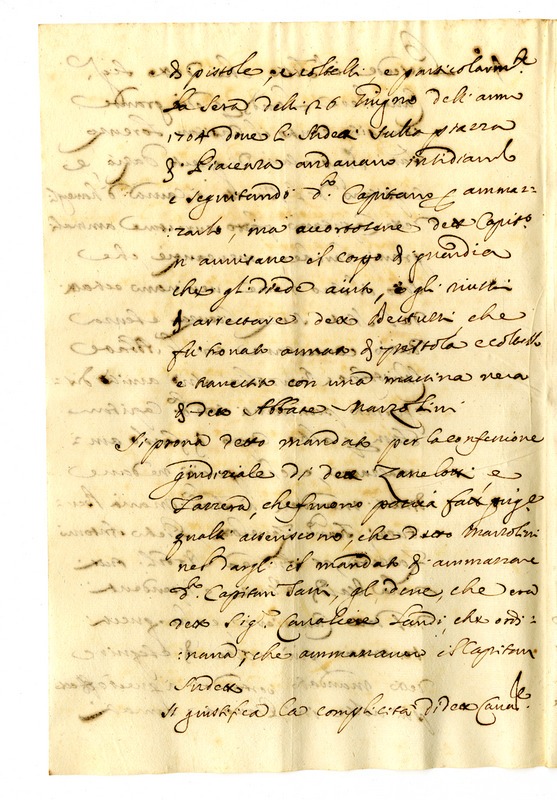 di pistole, e coltelli, e particolarmte
la sera delli 26 Giugno dell'anno
1704 dove li sudetti sulla piazza
di Piacenza andavano insidiando
e seguitando do. Capitano per ammaz-
zarlo, ma accortosene detto Capitno.
n avvisare il corpo di guardia
che gli diede aiuto, e gli riuscì
di arrestare detto che
fu trovato armato di pistola e coltello
e travestito con una martina nera
di detto Abbate Marzolini
Si prova detto mandato per la confessione
giudiziale di detti Zanelotti e
Lazzera, che furono poscia fatti
quali asseriscono, che detto Marzolini
nel dargli il mandato di ammazzare
do. Capitan Tavi, gli disse, che era
detto Sigr. Cavaliere Landi, che ordi:
:nava, che ammazzavero il Capitan
sudetto
Si giustifica la complicità di detto Cavale.